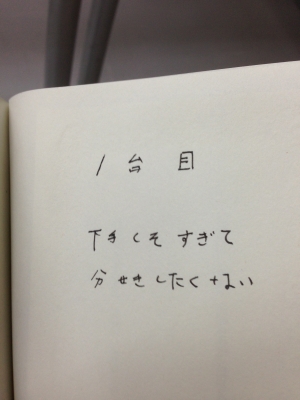 1台目
下手くそすぎて
分せきしたくない